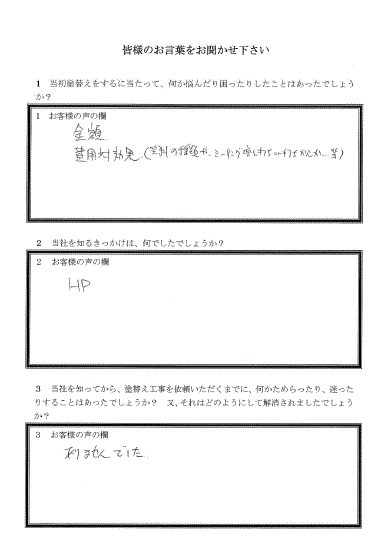 皆様のお言葉をお聞かせ下さい
1 当初塗替えをするに当たって、何か悩んだり困ったりしたことはあったでしょう
か？
1 お客様の声の欄
金額
費用対効果（塗料の種類や、
2 当社を知るきっかけは、何でしたでしょうか？
2 お客様の声の欄
HP
3 当社を知ってから、塗替え工事を依頼いただくまでに、何かためらったり、迷った
りすることはあったでしょうか？ 又、それはどのようにして解消されましたでしょう
か？
3 お客様の声の欄
ありませんでした。